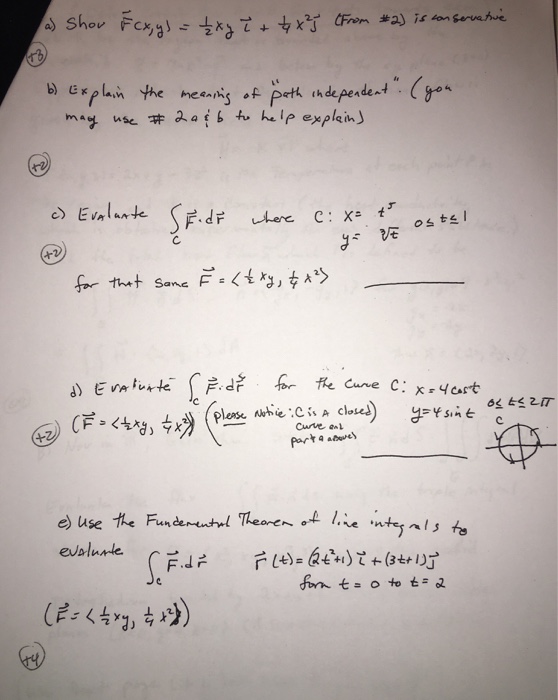 a) Show F(x,y) = ½xy i + ¼x²j (From #2) is conservative
+3
b) Explain the meaning of "path independent". (you
may use # 2a & b to help explain)
+2
c) Evaluate ∫F·dr where C: x= t⁵
C
y= ∛t 0≤t≤1
+2
for that same F = <½xy, ¼x²>
d) Evaluate ∫F·dr for the curve C: x=4cost
C
y=4sint 0≤t≤2π
(F=<½xy, ¼x²>) (please notice: C is a closed)
curve and
part a above
+2
C
e) Use the Fundemental Theorem of line integrals to
evaluate ∫F·dr r(t)=(2t²+1)i+(3t+1)j
C
form t=0 to t=2
(F=<½xy, ¼x²>)
+4